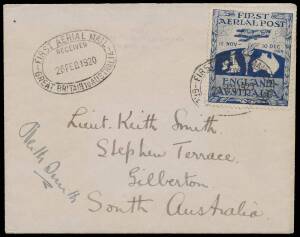 FIRST AERIAL MAIL
RECEIVED
26 FEB. 1920
GREAT BRITAIN
FIRST
AERIAL POST
12 NOV. 10 DEC.
ENGLAND
AUSTRALIA
FIRST
Lieut. Keith Smith,
Stephen Terrace,
Gilberton
South Australia.
Keith Smith